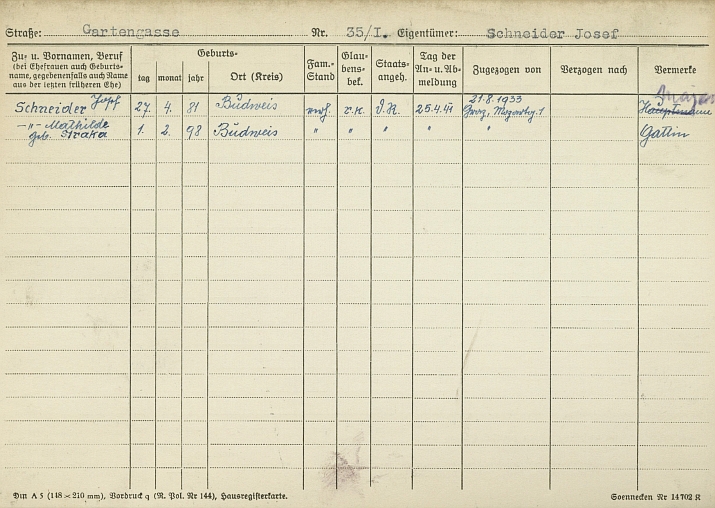 Straße: Gartengasse Nr. 35/I. Eigentümer: Schneider Josef
Zu- u. Vornamen, Beruf
(bei Ehefrauen auch Geburts-
name, gegebenenfalls auch Name
aus der letzten früheren Ehe)
Geburts-
tag monat jahr Ort (Kreis)
Fam.-
Stand
Glau-
bens-
bek.
Staats-
angeh.
Tag der
An- u. Ab-
meldung
Zugezogen von
Verzogen nach
Vermerke
Major
Schneider Josef 27. 4. 81 Budweis verh. r.k. D.R. 25.4.41 21.8.1933 Hauptmann
-"- Mathilde 1. 2. 98 Budweis " " " " " Gattin
geb. Straka
Din A 5 (148 × 210 mm), Vordruck q (R. Pol. Nr 144), Hausregisterkarte.
Soennecken Nr 14702 R